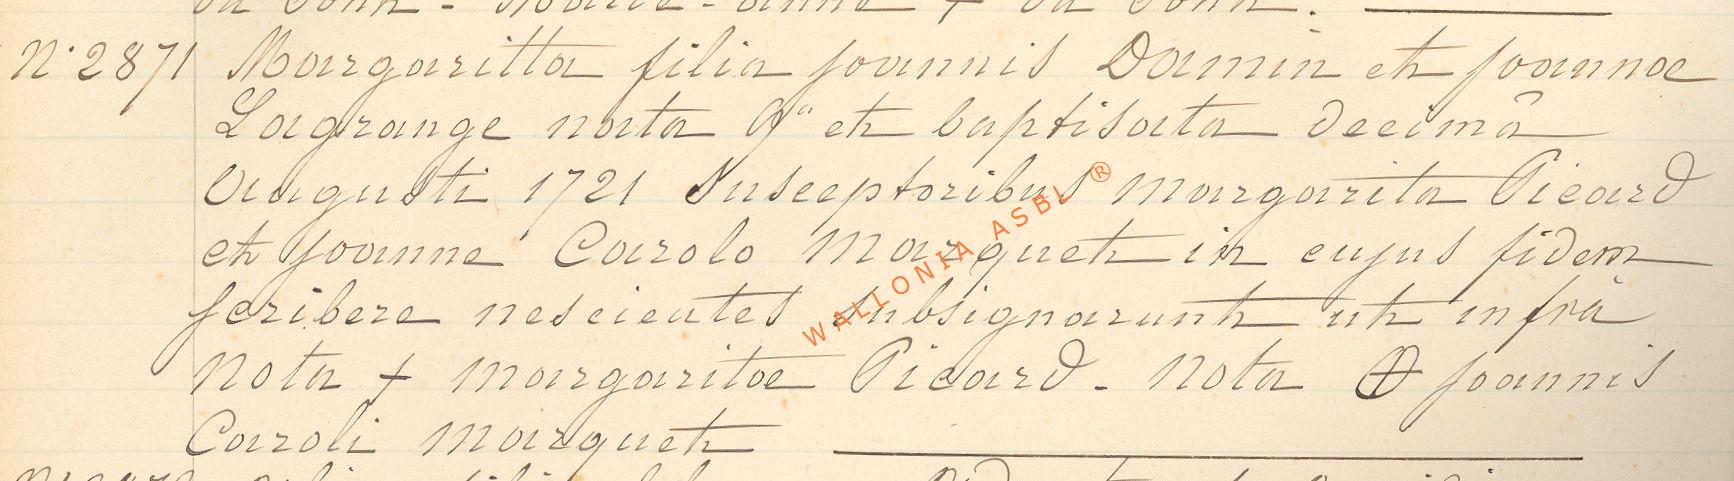 N° 2871 Margaritta filia joannis Damin et joannae
Lagrange nata 9ª et baptisata decimâ
Augusti 1721 Susceptoribus margarita Picard
et joanne Carolo Marquet in cujus fidem
scribere nescientes subsignarunt ut infrà
Nota + margaritae Picard - Nota joannis
Caroli Marquet
WALLONIA ASBL ®